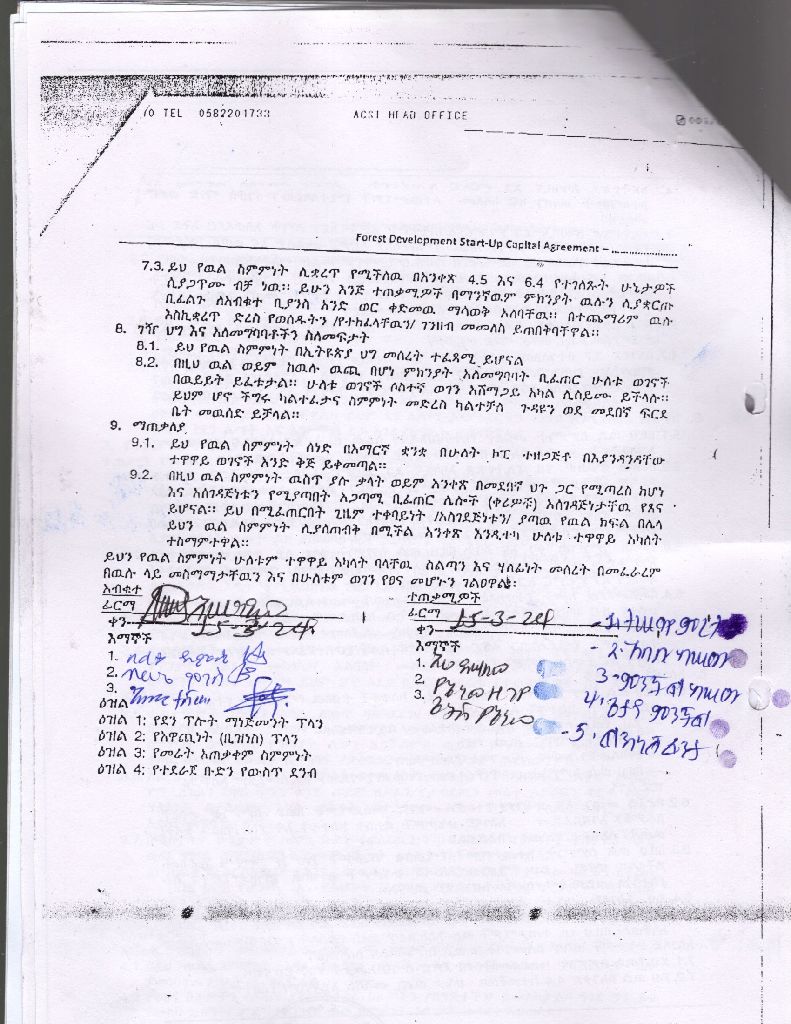 /O TEL 0582201733 ACSI HEAD OFFICE
Forest Development Start-Up Capital Agreement – ......................
7.3. ይህ የዉል ስምምነት ሊቋረጥ የሚችለዉ በአንቀጽ 4.5 እና 6.4 የተገለጹት ሁኔታዎች
ሲያጋጥሙ ብቻ ነዉ፡፡ ይሁን እንጅ ተጠቃሚዎች በማንኛዉም ምክንያት ዉሉን ሲያቋርጡ
ቢፈልጉ ለአብቁተ ቢያንስ አንድ ወር ቀድመዉ ማሳወቅ አለባቸዉ፡፡ በተጨማሪም ዉሉ
እስኪቋረጥ ድረስ የወሰዱትን /የተከፈላቸዉን/ ገንዘብ መመለስ ይጠበቅባቸዋል፡፡
8. ገዥ ህግ እና አለመግባባቶችን ስለመፍታት
8.1. ይህ የዉል ስምምነት በኢትዮጵያ ህግ መሰረት ተፈጻሚ ይሆናል
8.2. በዚህ ዉል ወይም ከዉሉ ዉጪ በሆነ ምክንያት አለመግባባት ቢፈጠር ሁለቱ ወገኖች
በዉይይት ይፈቱታል፡፡ ሁለቱ ወገኖች ሶስተኛ ወገን አሸማጋይ አካል ሊሰይሙ ይችላሉ፡፡
ይህም ሆኖ ችግሩ ካልተፈታና ስምምነት መድረስ ካልተቻለ ጉዳዩን ወደ መደበኛ ፍርድ
ቤት መዉሰድ ይቻላል፡፡
9. ማጠቃለያ
9.1. ይህ የዉል ስምምነት ሰነድ በአማርኛ ቋንቋ በሁለት ኮፒ ተዘጋጅቶ በእያንዳንዳቸው
ተዋዋይ ወገኖች አንድ ቅጅ ይቀመጣል፡፡
9.2. በዚህ ዉል ስምምነት ዉስጥ ያሉ ቃላት ወይም አንቀጽ በመደበኛ ህጉ ጋር የሚጣረስ ከሆነ
እና አስገዳጅነቱን የሚያጣበት አጋጣሚ ቢፈጠር ሌሎች (ቀሪዎቹ) አስገዳጅነታቸዉ የጸና
ይሆናል፡፡ ይህ በሚፈጠርበት ጊዜም ተቀባይነት /አስገዳጅነቱን/ ያጣዉ የዉል ክፍል በሌላ
ይህን ዉል ስምምነት ሊያስጠብቅ በሚችል አንቀጽ እንዲተካ ሁለቱ ተዋዋይ አካለት
ተስማምተዋል፡፡
ይህን የዉል ስምምነት ሁለቱም ተዋዋይ አካላት ባላቸዉ ስልጣን እና ሃላፊነት መሰረት በመፈራረም
በዉሉ ላይ መስማማታቸዉን እና በሁለቱም ወገን የፀና መሆኑን ገልፀዋል፡
አብቁተ ተጠቃሚዎች
ፊርማ ፊርማ
ቀን 15-3-24 ቀን 15-3-24
እማኞች እማኞች
1. 1.
2. 2.
3. 3.
ዕዝል
ዕዝል 1: የደን ፕሎት ማነጅመንት ፕላን
ዕዝል 2: የአዋጪነት (ቢዝነስ) ፕላን
ዕዝል 3: የመሬት አጠቃቀም ስምምነት
ዕዝል 4: የተደራጀ ቡድን የውስጥ ደንብ